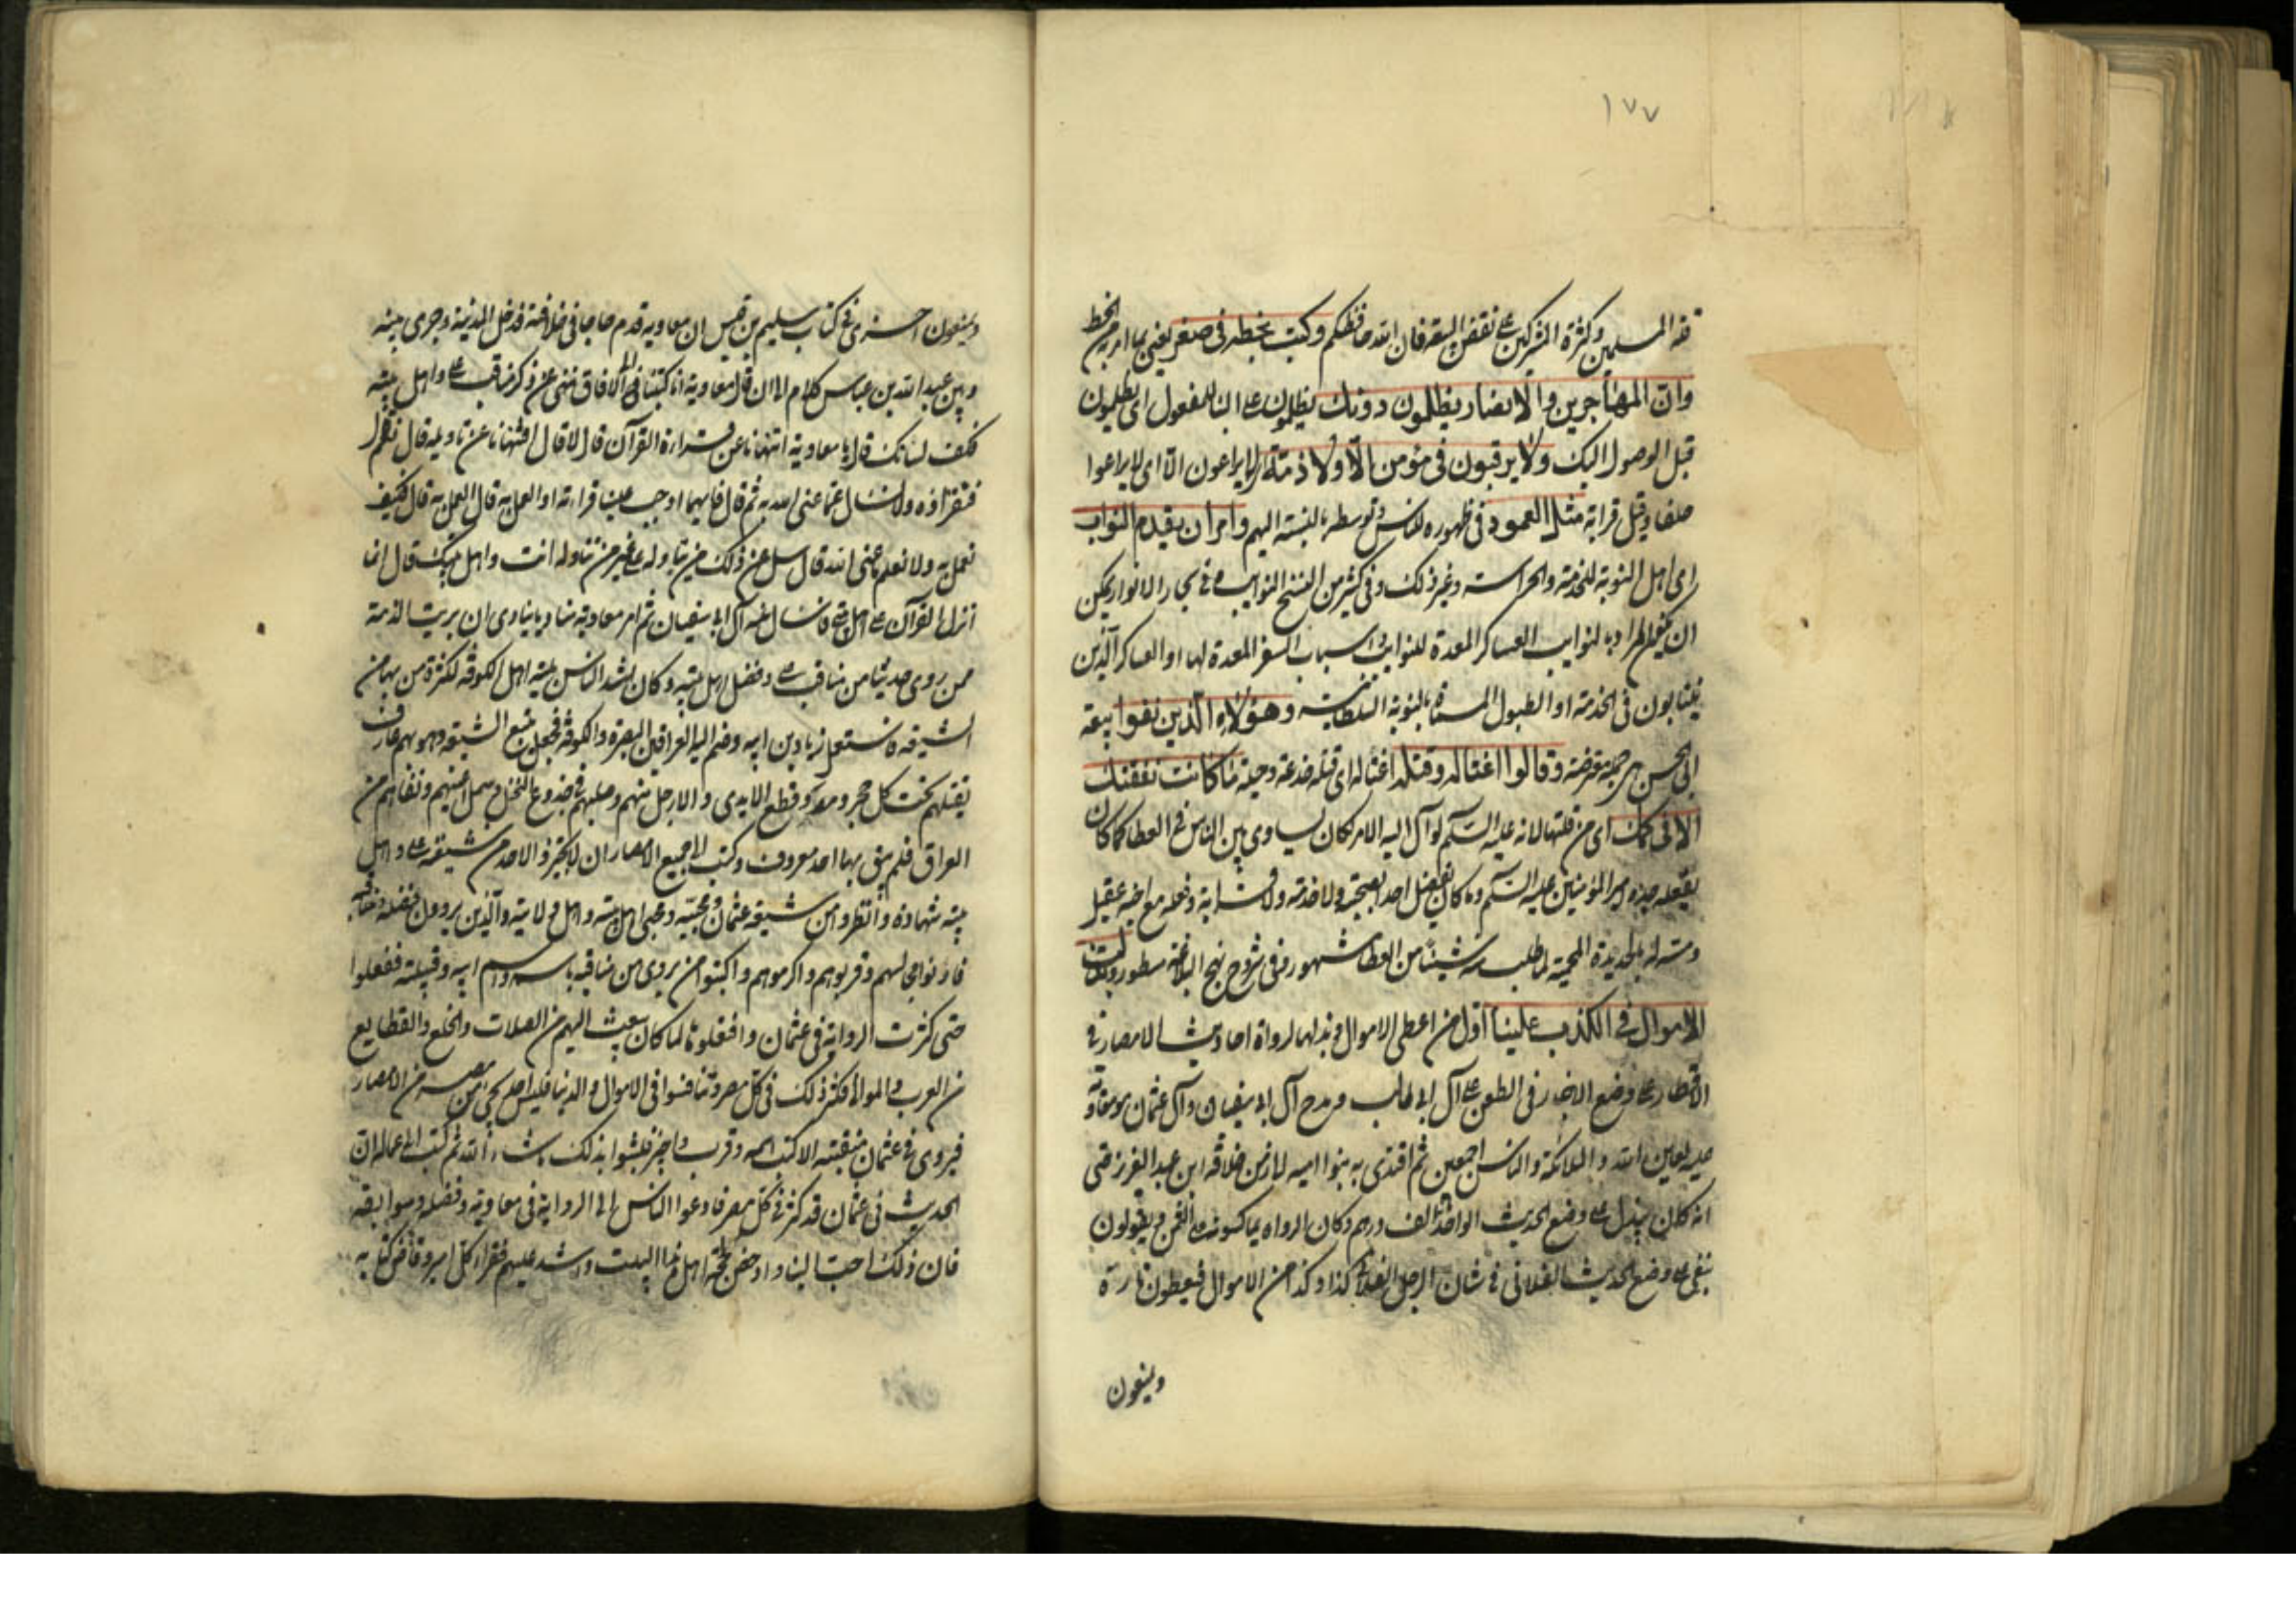 ١٧٧
قلة المسلمين وكثرة المشركين على نقض البيعة فان الله حافظكم وكتب بخطه في صغر يعني بما امر به الخط
وان المهاجرين والانصار يظلمون دونك يظلمون على البناء للمفعول اى يظلمون
قبل الوصول اليك ولا يرقبون فى مؤمن الّا ولا ذمّة اى لا يراعون الّا اى لا يراعوا
حلفا وقيل قرابة مثل العمود فى ظهوره للناس وتوسطه بالنسبة اليهم وامر ان يقدم النواب
اى اهل النوبة للخدمة والحراسة وغير ذلك وفى كثير من النسخ النوايب فى بحار الانوار يمكن
ان يكون المراد بالنوايب العساكر المعدة للنوايب او اسباب السفر المعدة لها او العساكر الذين
ينتابون فى الخدمة او الطبول المسماة بالنوبة السلطانية وهؤلاء الذين نفوا بيعة
ابى الحسن هى جملة معترضة وقالوا اغتاله وقتله اغتاله اى قتله خدعة وحيلة ما كانت نفقتك
الا فى كمك اى من قلتها لانه عليه السّلم لو آل اليه الامر لكان يساوى بين الناس فى العطا كما كان
يفعله جده امير المؤمنين عليه السّلم وما كان يفضل احدا بصحبة ولا خدمة ولا قرابة وفعله مع اخيه عقيل
ومسّه له بالحديدة المحمية لما طلب منه شيئا من العطا مشهور وفى شروح نهج البلاغة مسطور
الاموال فى الكذب علينا اول من اعطى الاموال وبذلها لرواة احاديث الامصار فى
الاقطار على وضع الاخبار فى الطعن على آل ابى طالب ومدح آل ابى سفيان وآل عثمان هو معاوية
عليه لعاين الله والملائكة والناس اجمعين ثم اقتدى به بنوا اميه الى زمن خلافة ابن عبد العزيز حتى
انه كان يبذل على وضع الحديث الواحد الف درهم وكان الرواه يماكسون على الثمن ويقولون
نبغى على وضع الحديث الفلانى فى شان الرجل الفلانى كذا وكذا من الاموال فيعطون تارة
ويمنعون
ويمنعون اخرى فى كتاب سليم بن قيس ان معاوية قدم حاجا فى خلافته فدخل المدينة وجرى بينه
وبين عبد الله بن عباس كلام الى ان قال معاوية انا كتبنا فى الافاق ننهى عن ذكر مناقب على واهل بيته
فكف لسانك قال يا معاوية اتنهانا عن قراءة القرآن قال لا قال افتنهانا عن تاويله قال نعم قال
فنقراؤه ولا نسأل عمّا عنى الله به ثم قال فايهما اوجب علينا قراءته او العمل به قال العمل به قال فكيف
نعمل به ولا نعلم ما عنى الله قال سل عن ذلك من يتاوله على غير من تتاوله انت واهل بيتك قال انما
انزل القرآن على اهل بيتى فانسال عنه آل ابى سفيان ثم امر معاوية مناديا ينادى ان بريت الذمة
ممن روى حديثا من مناقب على وفضل اهل بيته وكان اشد الناس بلية اهل الكوفة لكثرة من بها من
الشيعة فاستعمل زياد بن ابيه وضم اليه العراقين البصرة والكوفة فجعل يتبع الشيعة وهو بهم عارف
يقتلهم تحت كل حجر ومدر وقطع الايدى والارجل منهم وصلبهم فى جذوع النخل وسمل اعينهم ونفاهم من
العراق فلم يبق بها احد معروف وكتب الى جميع الامصار ان لا يجيزوا لاحد من شيعة على واهل
بيته شهادة وانظروا من شيعة عثمان ومحبيه ومحبى اهل بيته واهل ولايته والذين يروون فضله ومناقبه
فادنوا مجالسهم وقربوهم واكرموهم واكتبوا من يروى من مناقبه باسمه واسم ابيه وقبيلته ففعلوا
حتى كثرت الرواية فى عثمان وافتعلوها لما كان يبعث اليهم من الصلات والخلع والقطايع
من العرب والموالى فكثر ذلك فى كل مصر وتنافسوا فى الاموال والدنيا فليس احد يجئ من مصر من الامصار
فيروى فى عثمان منقبته الا كتب اسمه وقرب واجيز فلبثوا بذلك ما شاء الله ثم كتب الى عماله ان
الحديث فى عثمان قد كثر فى كل مصر فادعوا الناس الى الرواية فى معاوية وفضله وسوابقه
فان ذلك احب الينا وادحض لحجة اهل هذا البيت واشد عليهم فقراء كل امير وقاض كتابه